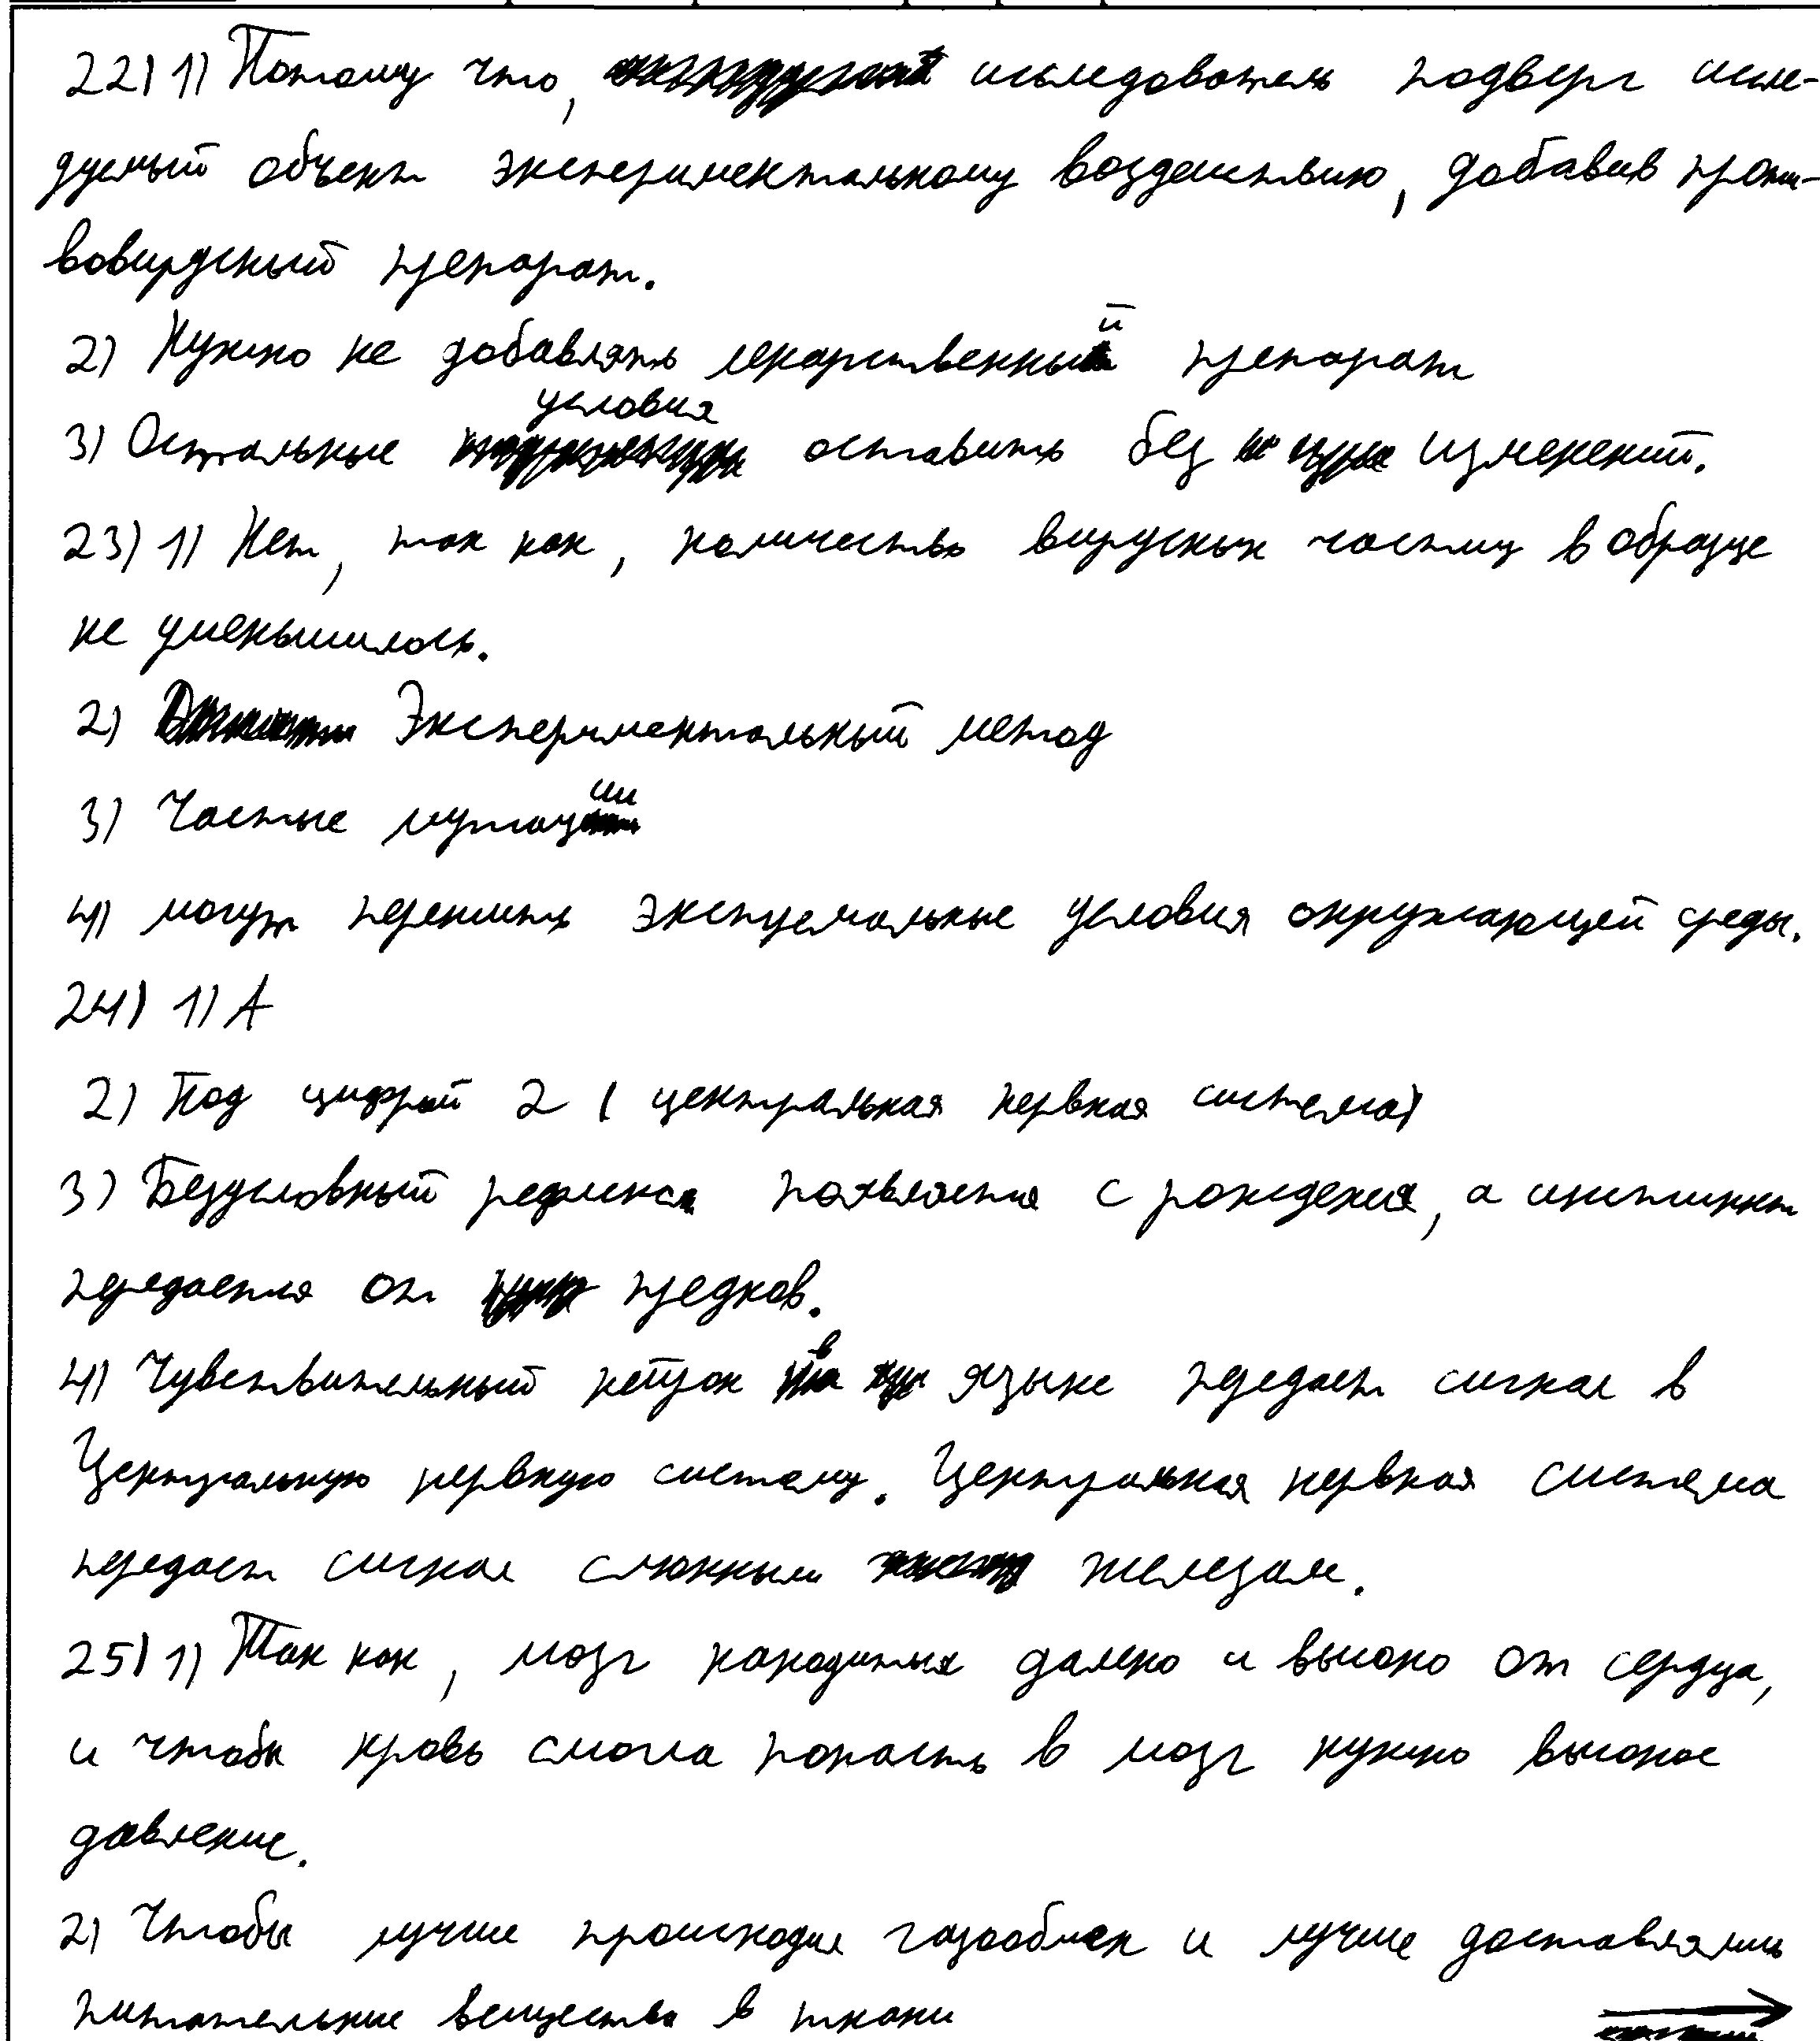 22) 1) Потому что, исследователь подверг иссле-
дуемый объект экспериментальному воздействию, добавив проти-
вовирусный препарат.
2) Нужно не добавлять лекарственный препарат
3) Остальные условия оставить без измерений.
23) 1) Нет, так как, количество вирусных частиц в образце
не уменьшилось.
2) Экспериментальный метод
3) Частые мутации
4) могут пережить экстремальные условия окружающей среды.
24) 1) А
2) Под цифрой 2 (центральная нервная система)
3) Безусловный рефлекс появляется с рождения, а инстинкт
передается от предков.
4) Чувствительный нейрон в языке передает сигнал в
Центральную нервную систему. Центральная нервная система
передает сигнал слюнным железам.
25) 1) Так как, мозг находиться далеко и высоко от сердца,
и чтобы кровь смогла попасть в мозг нужно высокое
давление.
2) Чтобы лучше происходил газообмен и лучше доставлялись
питательные вещества в ткани